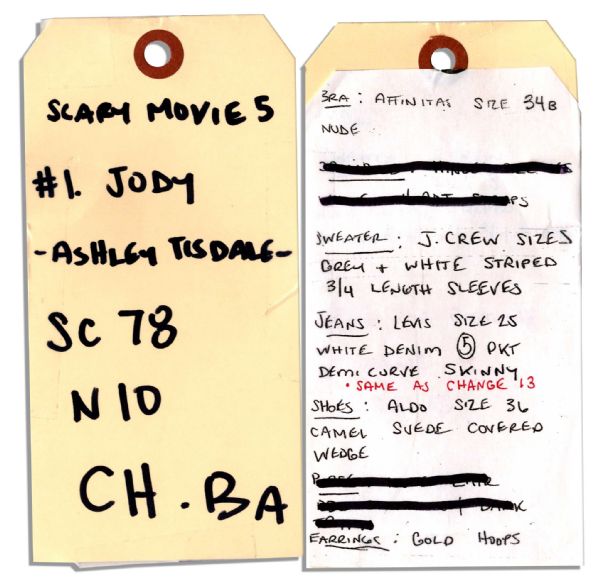 SCARY MOVIE 5
#1. JODY
-ASHLEY TISDALE-
SC 78
N10
CH. BA
BRA: AFFINITAS SIZE 34B
NUDE
SWEATER: J. CREW SIZE S
GREY + WHITE STRIPED
3/4 LENGTH SLEEVES
JEANS: LEVIS SIZE 25
WHITE DENIM 5 PKT
DEMI CURVE SKINNY
• SAME AS CHANGE 13
SHOES: ALDO SIZE 36
CAMEL SUEDE COVERED
WEDGE
EARRINGS: GOLD HOOPS